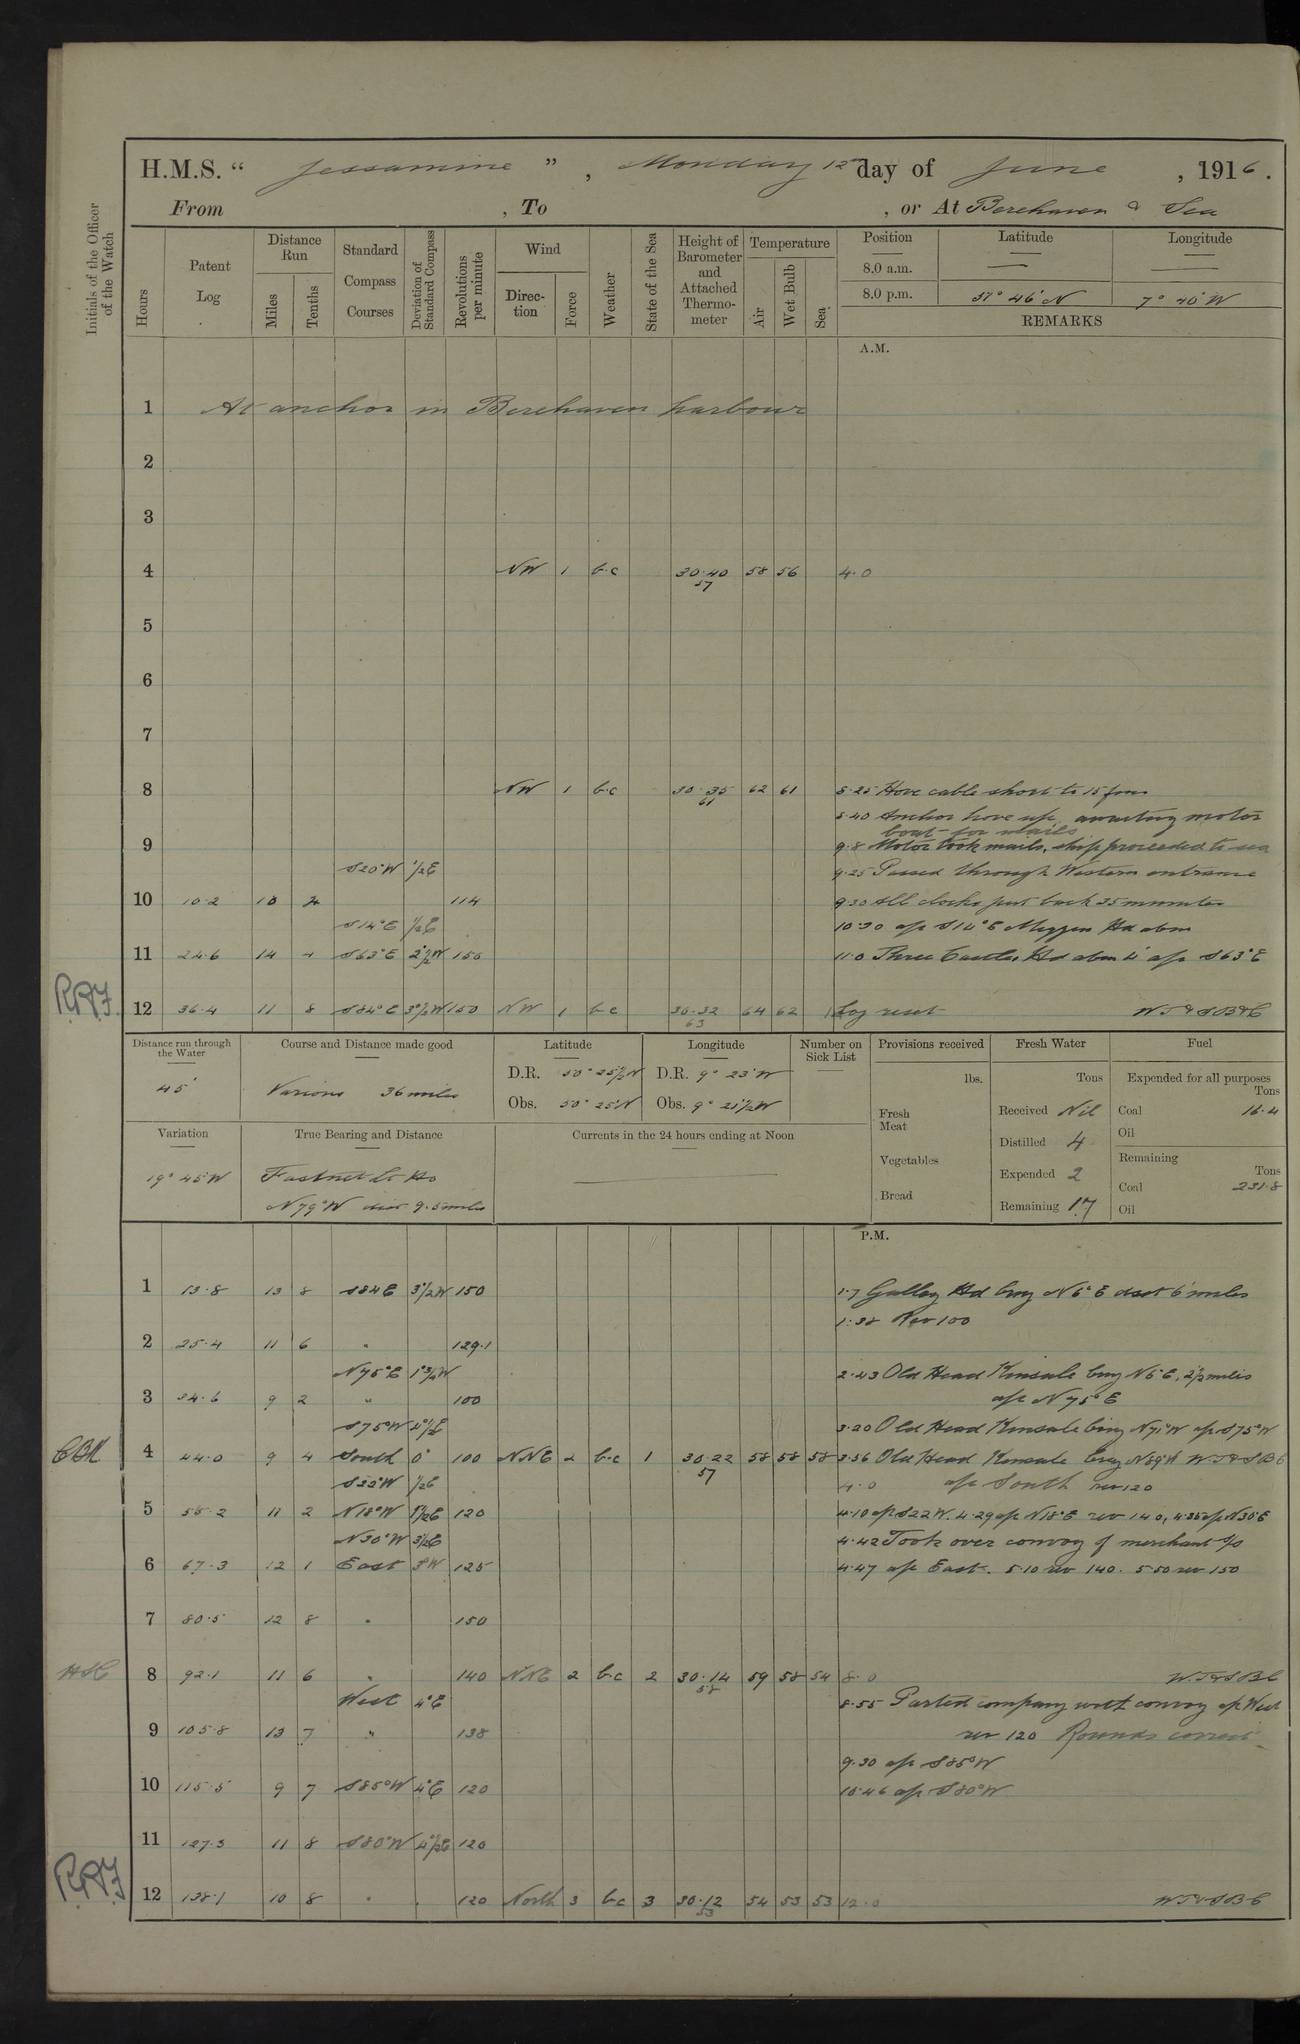 H.M.S. “ Jessamine ” , Monday 12 day of June , 1916.
From , To , or At Berehaven & Sea
Initials of the Officer of the Watch
Hours
Patent Log
Distance Run
Miles
Tenths
Standard Compass Courses
Deviation of Standard Compass
Revolutions per minute
Wind
Direction
Force
Weather
State of the Sea
Height of Barometer and Attached Thermometer
Temperature
Air
Wet Bulb
Sea
Position Latitude Longitude
8.0 a.m. — —
8.0 p.m. 51° 46' N 7° 40' W
REMARKS
A.M.
1 At anchor in Berehaven harbour
2
3
4 NW 1 b.c 30.40 58 56 4.0
57
5
6
7
8 NW 1 b.c 30.35 62 61 8.25 Hove cable short to 15 fms
61
8.40 Anchor hove up, awaiting motor
boat for mails
9 9.8 Motor took mails, ship proceeded to sea
S20°W 1/2E 9.25 Passed through Western entrance
10 10.2 10 2 114 9.30 All clocks put back 35 minutes
S14°E 1/2E 10.30 a/c S14°E Mizzen Hd abm
11 24.6 14 4 S63°E 2 1/2W 150 11.0 Three Castles Hd abm 4' a/c S63°E
RRF. 12 36.4 11 8 S84°E 3°1/2W 150 NW 1 b.c 30.32 64 62 Log reset
63
Distance run through the Water
45'
Course and Distance made good
Various 36 miles
Latitude
D.R.
Obs.
Longitude
D.R. 9° 23' W
Obs. 9° 21 1/2W
Number on Sick List
Provisions received
lbs.
Fresh Meat
Vegetables
Bread
Fresh Water
Tons
Received Nil
Distilled 4
Expended 2
Remaining 17
Fuel
Expended for all purposes
Tons
Coal 16.4
Oil
Remaining
Tons
Coal 231.8
Oil
Variation
19° 45'W
True Bearing and Distance
Fastnet Lt Ho
N79°W dist 9.5 miles
Currents in the 24 hours ending at Noon
P.M.
1 13.8 13 8 S84E 3 1/2W 150 1.7 Galley Hd brg N6°E dist 6 miles
1.38 Rev 100
2 25.4 11 6 " 129.1
N75°E 1°3/4W 2.43 Old Head Kinsale brg N6°E, 2 1/2 miles
a/c N75°E
3 34.6 9 2 " 100
S75°W 4°1/2E 3.20 Old Head Kinsale brg N71°W a/c S75°W
4 44.0 9 4 South 0° 100 NNE 2 b.c 1 30.22 58 58 58 3.36 Old Head Kinsale brg N89°W
57
1/2E 4.0 a/c South rev 120
5 11 2 N18°W 120 4.10 a/c S22W. 4.29 a/c N18°E rev 140, 4.35 a/c N30°E
N30°W 3 1/2E 4.42 Took over convoy of merchant s/s
6 67.3 12 1 East 3°W 125 4.47 a/c East. 5.10 rev 140. 5.50 rev 150
7 80.5 12 8 " 150
8 92.1 11 6 " 140 NNE 2 b.c 2 30.14 59 58 54 8.0
58
West 4°E 8.55 Parted company with convoy a/c West
9 105.8 13 7 " 138 rev 120 Rounds correct
9.30 a/c S85°W
10 115.5 9 7 S85°W 4°E 120 10.46 a/c S80°W
11 127.3 11 8 S80°W 4°1/2E 120
RRF 12 138.1 10 8 " . 120 North 3 b.c 3 30.12 54 53 53 12.0
53